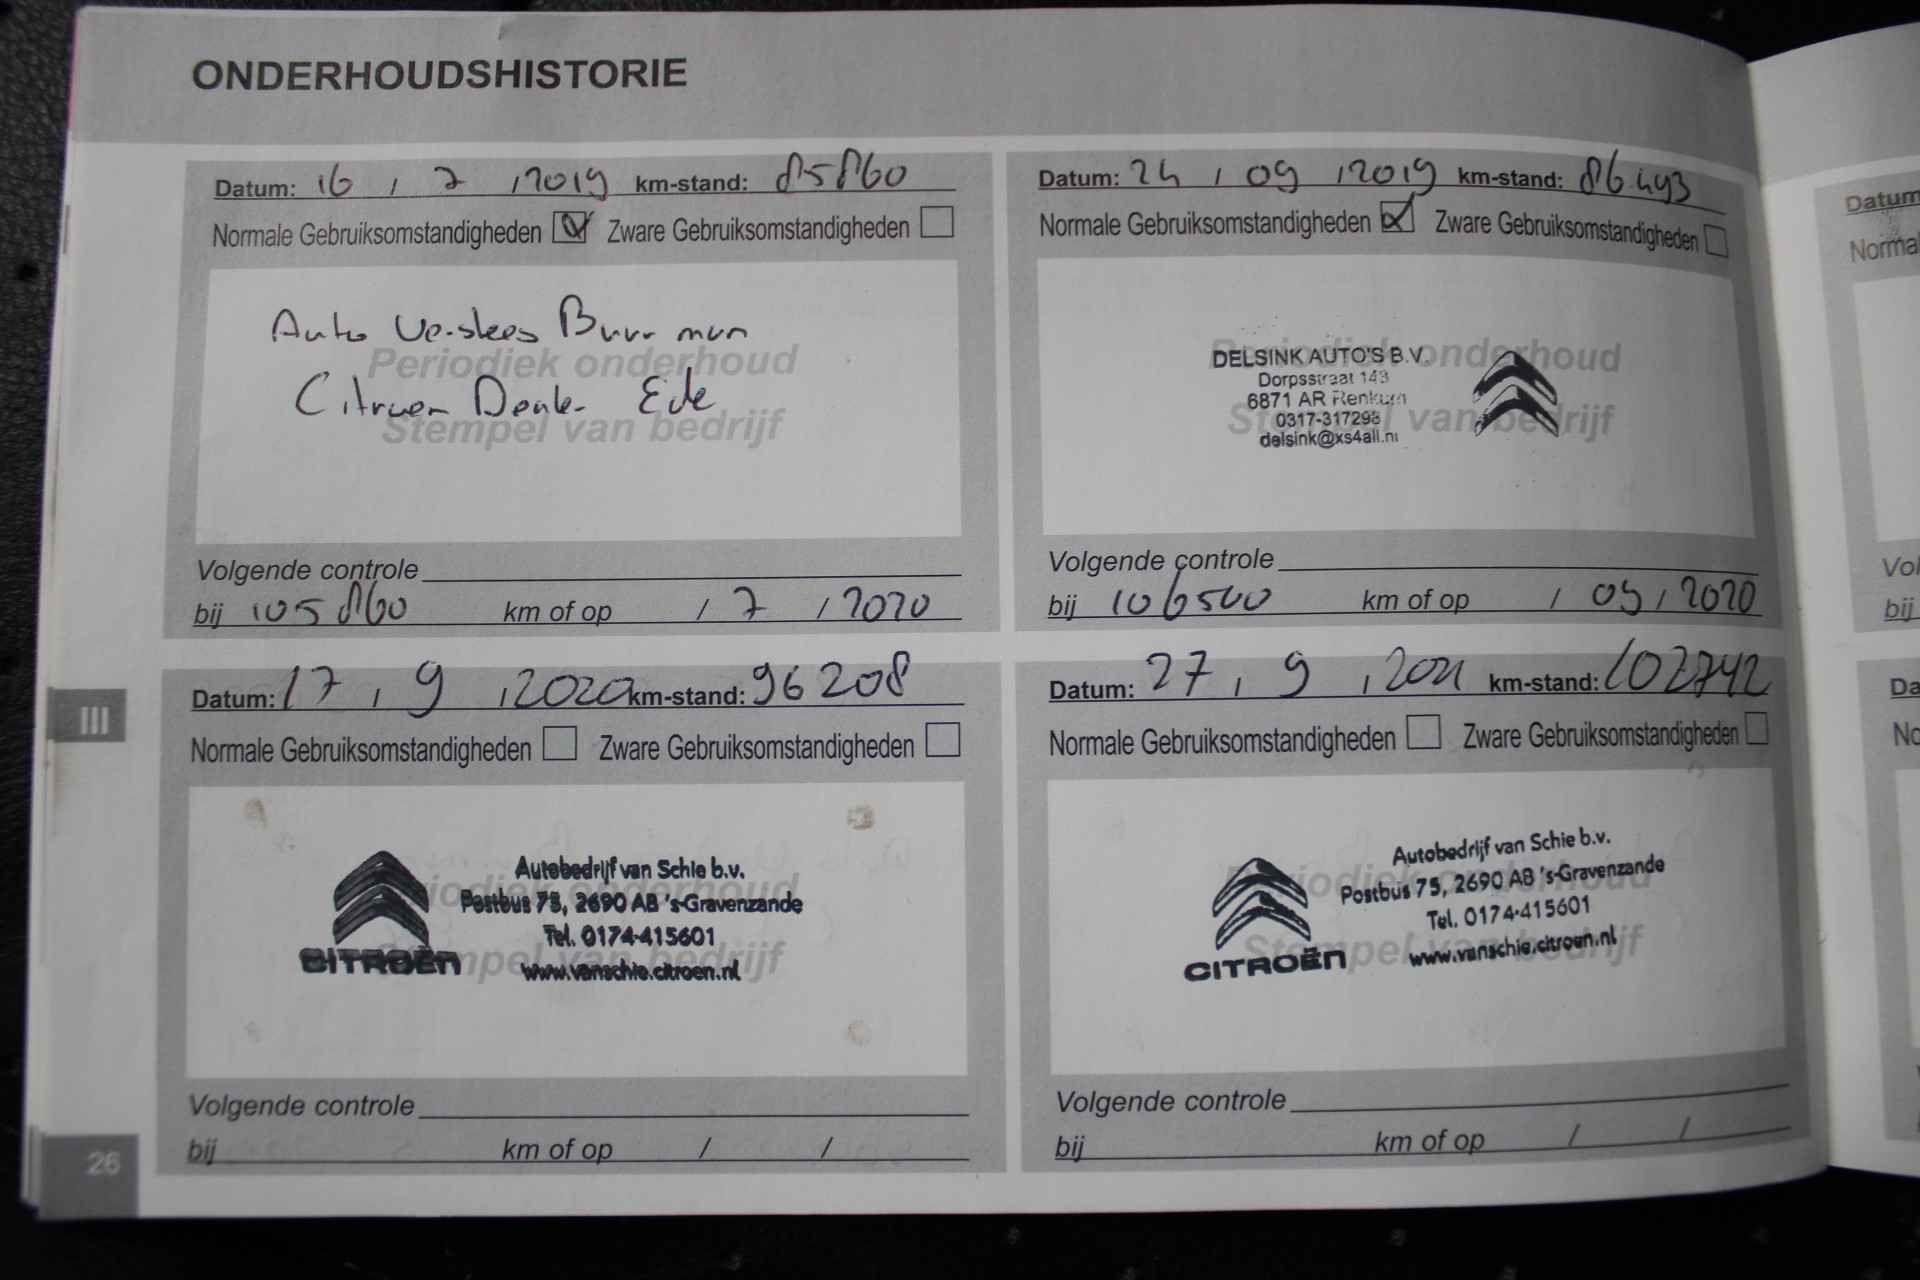 ONDERHOUDSHISTORIE
Datum: 16 / 7 / 2019 km-stand: 85860
Normale Gebruiksomstandigheden Zware Gebruiksomstandigheden
Auto
Periodiek onderhoud
Citroen Ede
Stempel van bedrijf
Volgende controle
bij 105860 km of op / 7 / 2020
Datum: 24 / 09 / 2019 km-stand: 86.493
Normale Gebruiksomstandigheden Zware Gebruiksomstandigheden
Periodiek onderhoud
DELSINK AUTO'S B.V.
Dorpsstraat 143
6871 AR Renkum
0317-317293
Stempel van bedrijf
delsink@xs4all.nl
Volgende controle
bij 106500 km of op / 09 / 2020
Datum: 17 / 9 / 2020 km-stand: 96208
Normale Gebruiksomstandigheden Zware Gebruiksomstandigheden
Autobedrijf van Schie b.v.
Periodiek onderhoud
Postbus 75, 2690 AB 's-Gravenzande
Tel. 0174-415601
CITROËN
Stempel van bedrijf
www.vanschie.citroen.nl
Volgende controle
bij km of op / /
Datum: 27 / 9 / 2021 km-stand: 102742
Normale Gebruiksomstandigheden Zware Gebruiksomstandigheden
Autobedrijf van Schie b.v.
Periodiek onderhoud
Postbus 75, 2690 AB 's-Gravenzande
Tel. 0174-415601
CITROËN
Stempel van bedrijf
www.vanschie.citroen.nl
Volgende controle
bij km of op / /
III
26
Datum
Vol
bij